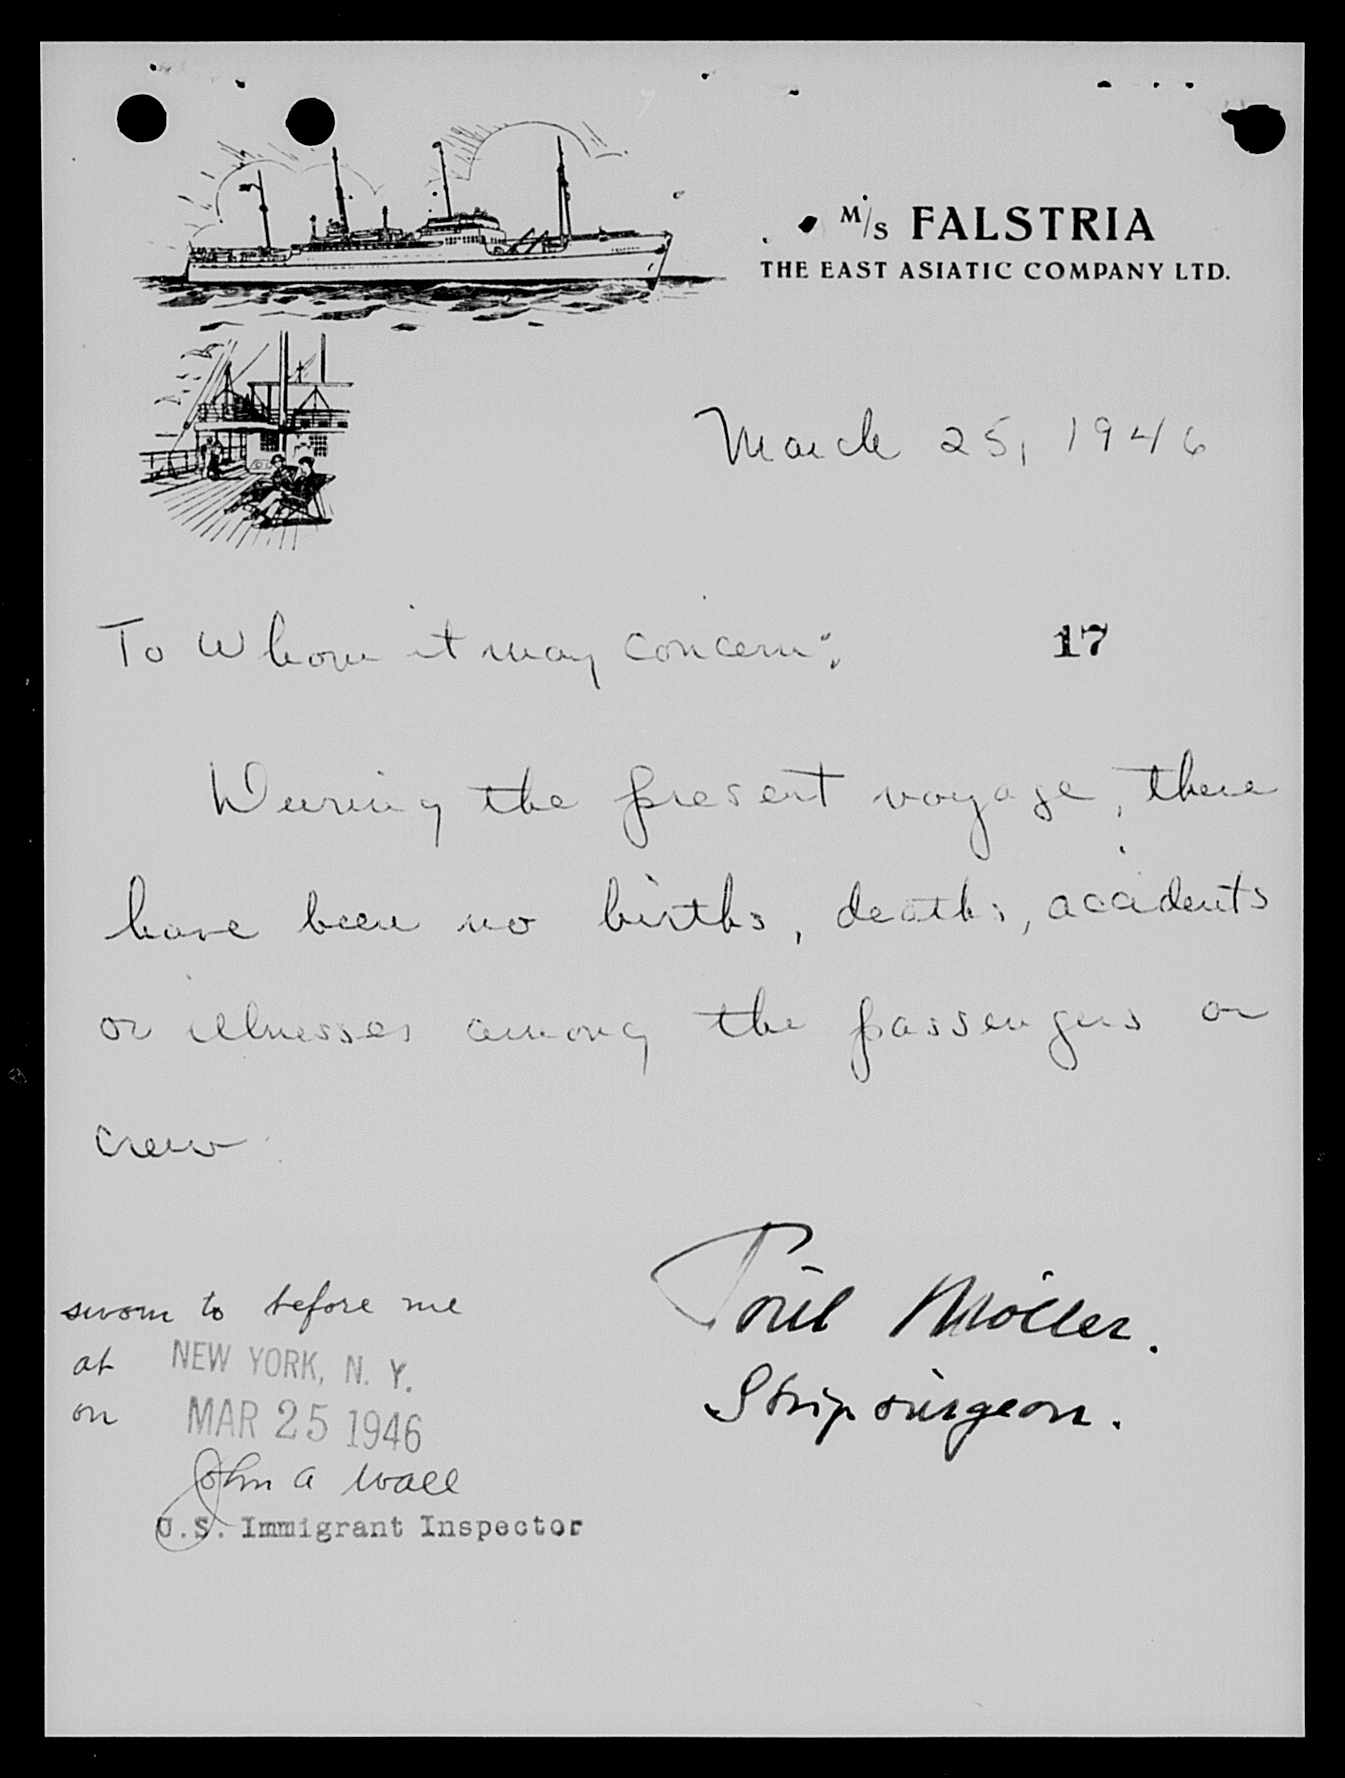 M/S FALSTRIA
THE EAST ASIATIC COMPANY LTD.
March 25, 1946
To Whom it may concern:
17
During the present voyage, there
have been no births, deaths, accidents
or illnesses among the passengers or
crew.
Poul Möller.
Ship surgeon.
sworn to before me
at NEW YORK, N. Y.
on MAR 25 1946
John A Wall
U.S. Immigrant Inspector